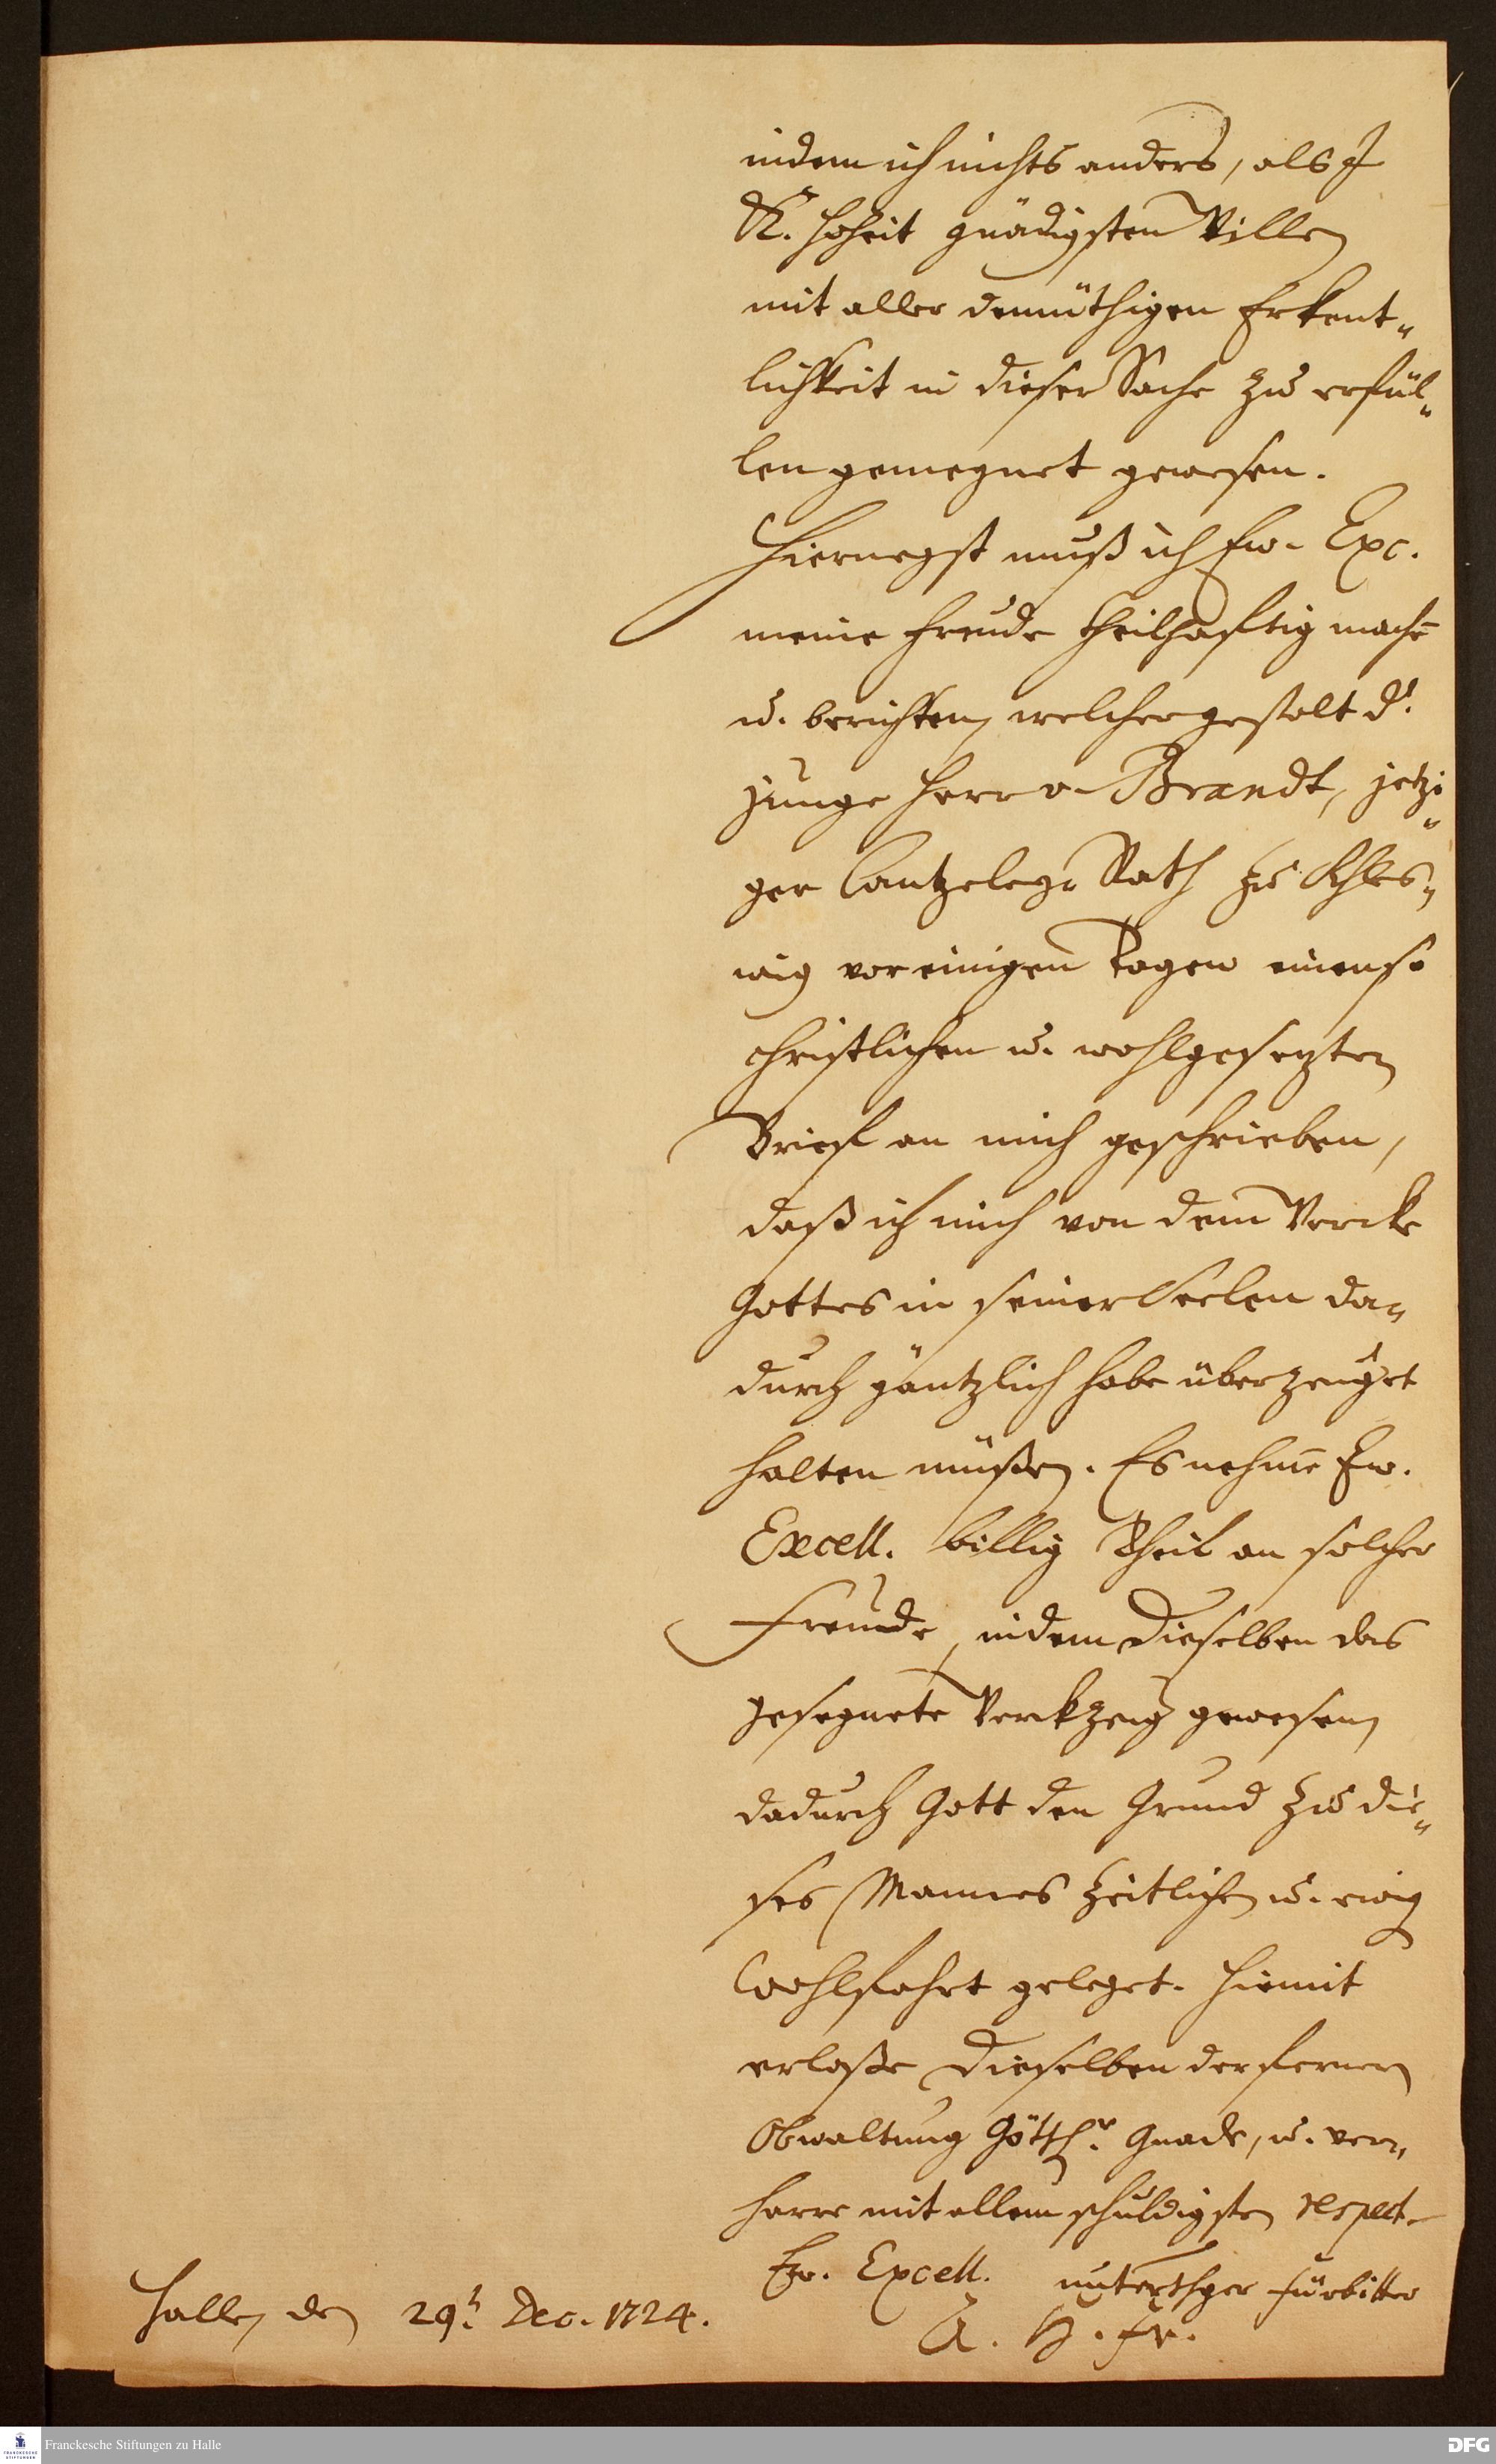 indem ich nichts anders, als J
K. Hoheit gnädigsten Willen
mit aller demüthigen Erkent„
lichkeit in dieser Sache zu erfül„
len gemeynet gewesen.
Hiernegst muß ich Ew. Exc.
meine Freude theilhafftig mache̅
u. berichten, welchergestalt d.
junge Herr v. Brandt, jetzi„
ger Cantzeley-Rath zu Schles„
wig vor einigen Tagen einen so
christlichen u. wohlgesetzten
Brief an mich geschrieben,
daß ich mich von dem Wercke
Gottes in seiner Seelen da„
durch gäntzlich habe überzeuget
halten müßen. Es nehme̅ Ew.
Excell. billig Theil an solcher
Freude, indem Dieselben das
gesegnete Werckzeug gewesen,
dadurch Gott den Grund zu die„
ses Mannes zeitlichen u. ewig
Wohlfahrt geleget. Hiemit
erlaße Dieselben der fernern
Obwaltung Göttlr. Gnade, u. ver„
harre mit allem schuldigsten respect.
Ew. Excell. unterthger Fürbitter
A. H. Fr.
Halle, den 29t. Dec. 1724.
Franckesche Stiftungen zu Halle
DFG